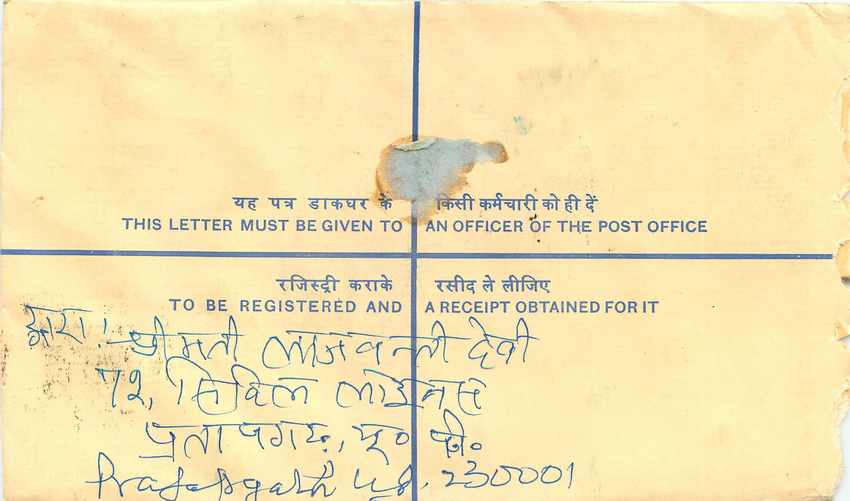 यह पत्र डाकघर के किसी कर्मचारी को ही दें
THIS LETTER MUST BE GIVEN TO AN OFFICER OF THE POST OFFICE
रजिस्ट्री कराके रसीद ले लीजिए
TO BE REGISTERED AND A RECEIPT OBTAINED FOR IT
द्वारा! श्रीमती लाजवन्ती देवी
72, सिविल लाइन्स
प्रतापगढ़, यू० पी०
Pratapgarh U.P. 230001